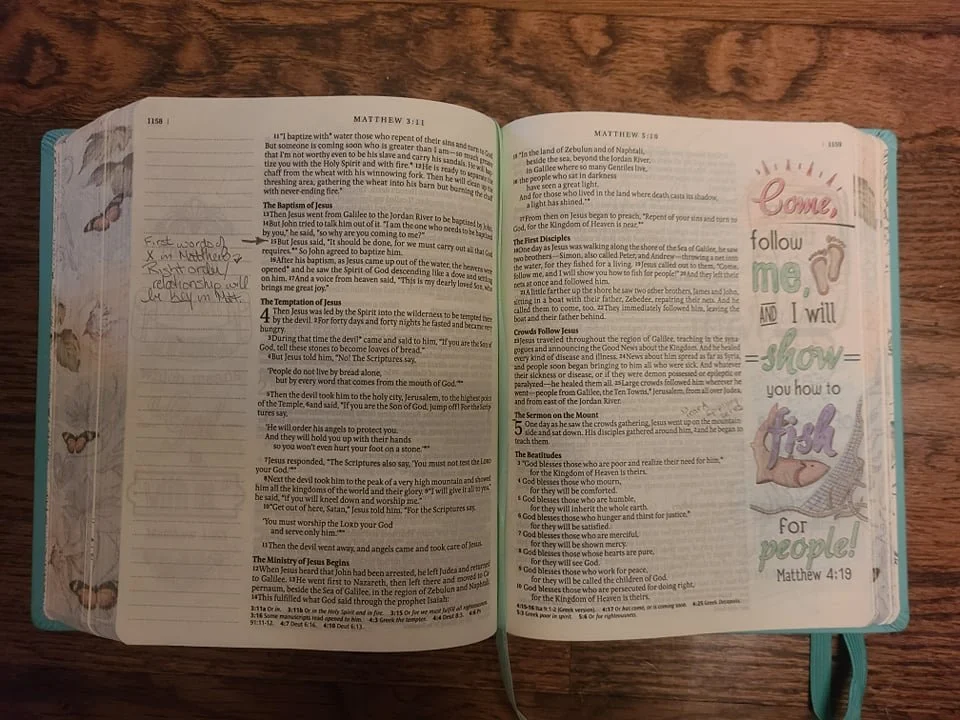 1158
MATTHEW 3:11
11"I baptize with* water those who repent of their sins and turn to God.
But someone is coming soon who is greater than I am—so much greater
that I'm not worthy even to be his slave and carry his sandals. He will bap-
tize you with the Holy Spirit and with fire.* 12He is ready to separate the
chaff from the wheat with his winnowing fork. Then he will clean up the
threshing area, gathering the wheat into his barn but burning the chaff
with never-ending fire."
The Baptism of Jesus
13Then Jesus went from Galilee to the Jordan River to be baptized by John.
14But John tried to talk him out of it. "I am the one who needs to be baptized
by you," he said, "so why are you coming to me?"
15But Jesus said, "It should be done, for we must carry out all that God
requires.*" So John agreed to baptize him.
16After his baptism, as Jesus came up out of the water, the heavens were
opened* and he saw the Spirit of God descending like a dove and settling
on him. 17And a voice from heaven said, "This is my dearly loved Son, who
brings me great joy."
First words of
X in Matthew
Right order/
relationship will
be key in Matt.
The Temptation of Jesus
4 Then Jesus was led by the Spirit into the wilderness to be tempted there
by the devil. 2For forty days and forty nights he fasted and became very
hungry.
3During that time the devil* came and said to him, "If you are the Son of
God, tell these stones to become loaves of bread."
4But Jesus told him, "No! The Scriptures say,
'People do not live by bread alone,
but by every word that comes from the mouth of God.'*"
5Then the devil took him to the holy city, Jerusalem, to the highest point
of the Temple, 6and said, "If you are the Son of God, jump off! For the Scrip-
tures say,
'He will order his angels to protect you.
And they will hold you up with their hands
so you won't even hurt your foot on a stone.'*"
7Jesus responded, "The Scriptures also say, 'You must not test the LORD
your God.'*"
8Next the devil took him to the peak of a very high mountain and showed
him all the kingdoms of the world and their glory. 9"I will give it all to you,"
he said, "if you will kneel down and worship me."
10"Get out of here, Satan," Jesus told him. "For the Scriptures say,
'You must worship the LORD your God
and serve only him.'*"
11Then the devil went away, and angels came and took care of Jesus.
The Ministry of Jesus Begins
12When Jesus heard that John had been arrested, he left Judea and returned
to Galilee. 13He went first to Nazareth, then left there and moved to Ca-
pernaum, beside the Sea of Galilee, in the region of Zebulun and Naphtali.
14This fulfilled what God said through the prophet Isaiah:
3:11a Or in. 3:11b Or in the Holy Spirit and in fire. 3:15 Or for we must fulfill all righteousness.
3:16 Some manuscripts read opened to him. 4:3 Greek the tempter. 4:4 Deut 8:3. 4:6 Ps
91:11-12. 4:7 Deut 6:16. 4:10 Deut 6:13.
MATTHEW 5:10
1159
15"In the land of Zebulun and of Naphtali,
beside the sea, beyond the Jordan River,
in Galilee where so many Gentiles live,
16the people who sat in darkness
have seen a great light.
And for those who lived in the land where death casts its shadow,
a light has shined."*
17From then on Jesus began to preach, "Repent of your sins and turn to
God, for the Kingdom of Heaven is near.*"
The First Disciples
18One day as Jesus was walking along the shore of the Sea of Galilee, he saw
two brothers—Simon, also called Peter, and Andrew—throwing a net into
the water, for they fished for a living. 19Jesus called out to them, "Come,
follow me, and I will show you how to fish for people!" 20And they left their
nets at once and followed him.
21A little farther up the shore he saw two other brothers, James and John,
sitting in a boat with their father, Zebedee, repairing their nets. And he
called them to come, too. 22They immediately followed him, leaving the
boat and their father behind.
Crowds Follow Jesus
23Jesus traveled throughout the region of Galilee, teaching in the syna-
gogues and announcing the Good News about the Kingdom. And he healed
every kind of disease and illness. 24News about him spread as far as Syria,
and people soon began bringing to him all who were sick. And whatever
their sickness or disease, or if they were demon possessed or epileptic or
paralyzed—he healed them all. 25Large crowds followed him wherever he
went—people from Galilee, the Ten Towns,* Jerusalem, from all over Judea,
and from east of the Jordan River.
The Sermon on the Mount
5 One day as he saw the crowds gathering, Jesus went up on the mountain-
side and sat down. His disciples gathered around him, 2and he began to
teach them.
The Beatitudes
3 "God blesses those who are poor and realize their need for him,*
for the Kingdom of Heaven is theirs.
4 God blesses those who mourn,
for they will be comforted.
5 God blesses those who are humble,
for they will inherit the whole earth.
6 God blesses those who hunger and thirst for justice,*
for they will be satisfied.
7 God blesses those who are merciful,
for they will be shown mercy.
8 God blesses those whose hearts are pure,
for they will see God.
9 God blesses those who work for peace,
for they will be called the children of God.
10 God blesses those who are persecuted for doing right,
for the Kingdom of Heaven is theirs.
4:15-16 Isa 9:1-2 (Greek version). 4:17 Or has come, or is coming soon. 4:25 Greek Decapolis.
5:3 Greek poor in spirit. 5:6 Or for righteousness.
Come,
follow
me,
AND I will
show
you how to
fish
for
people!
Matthew 4:19